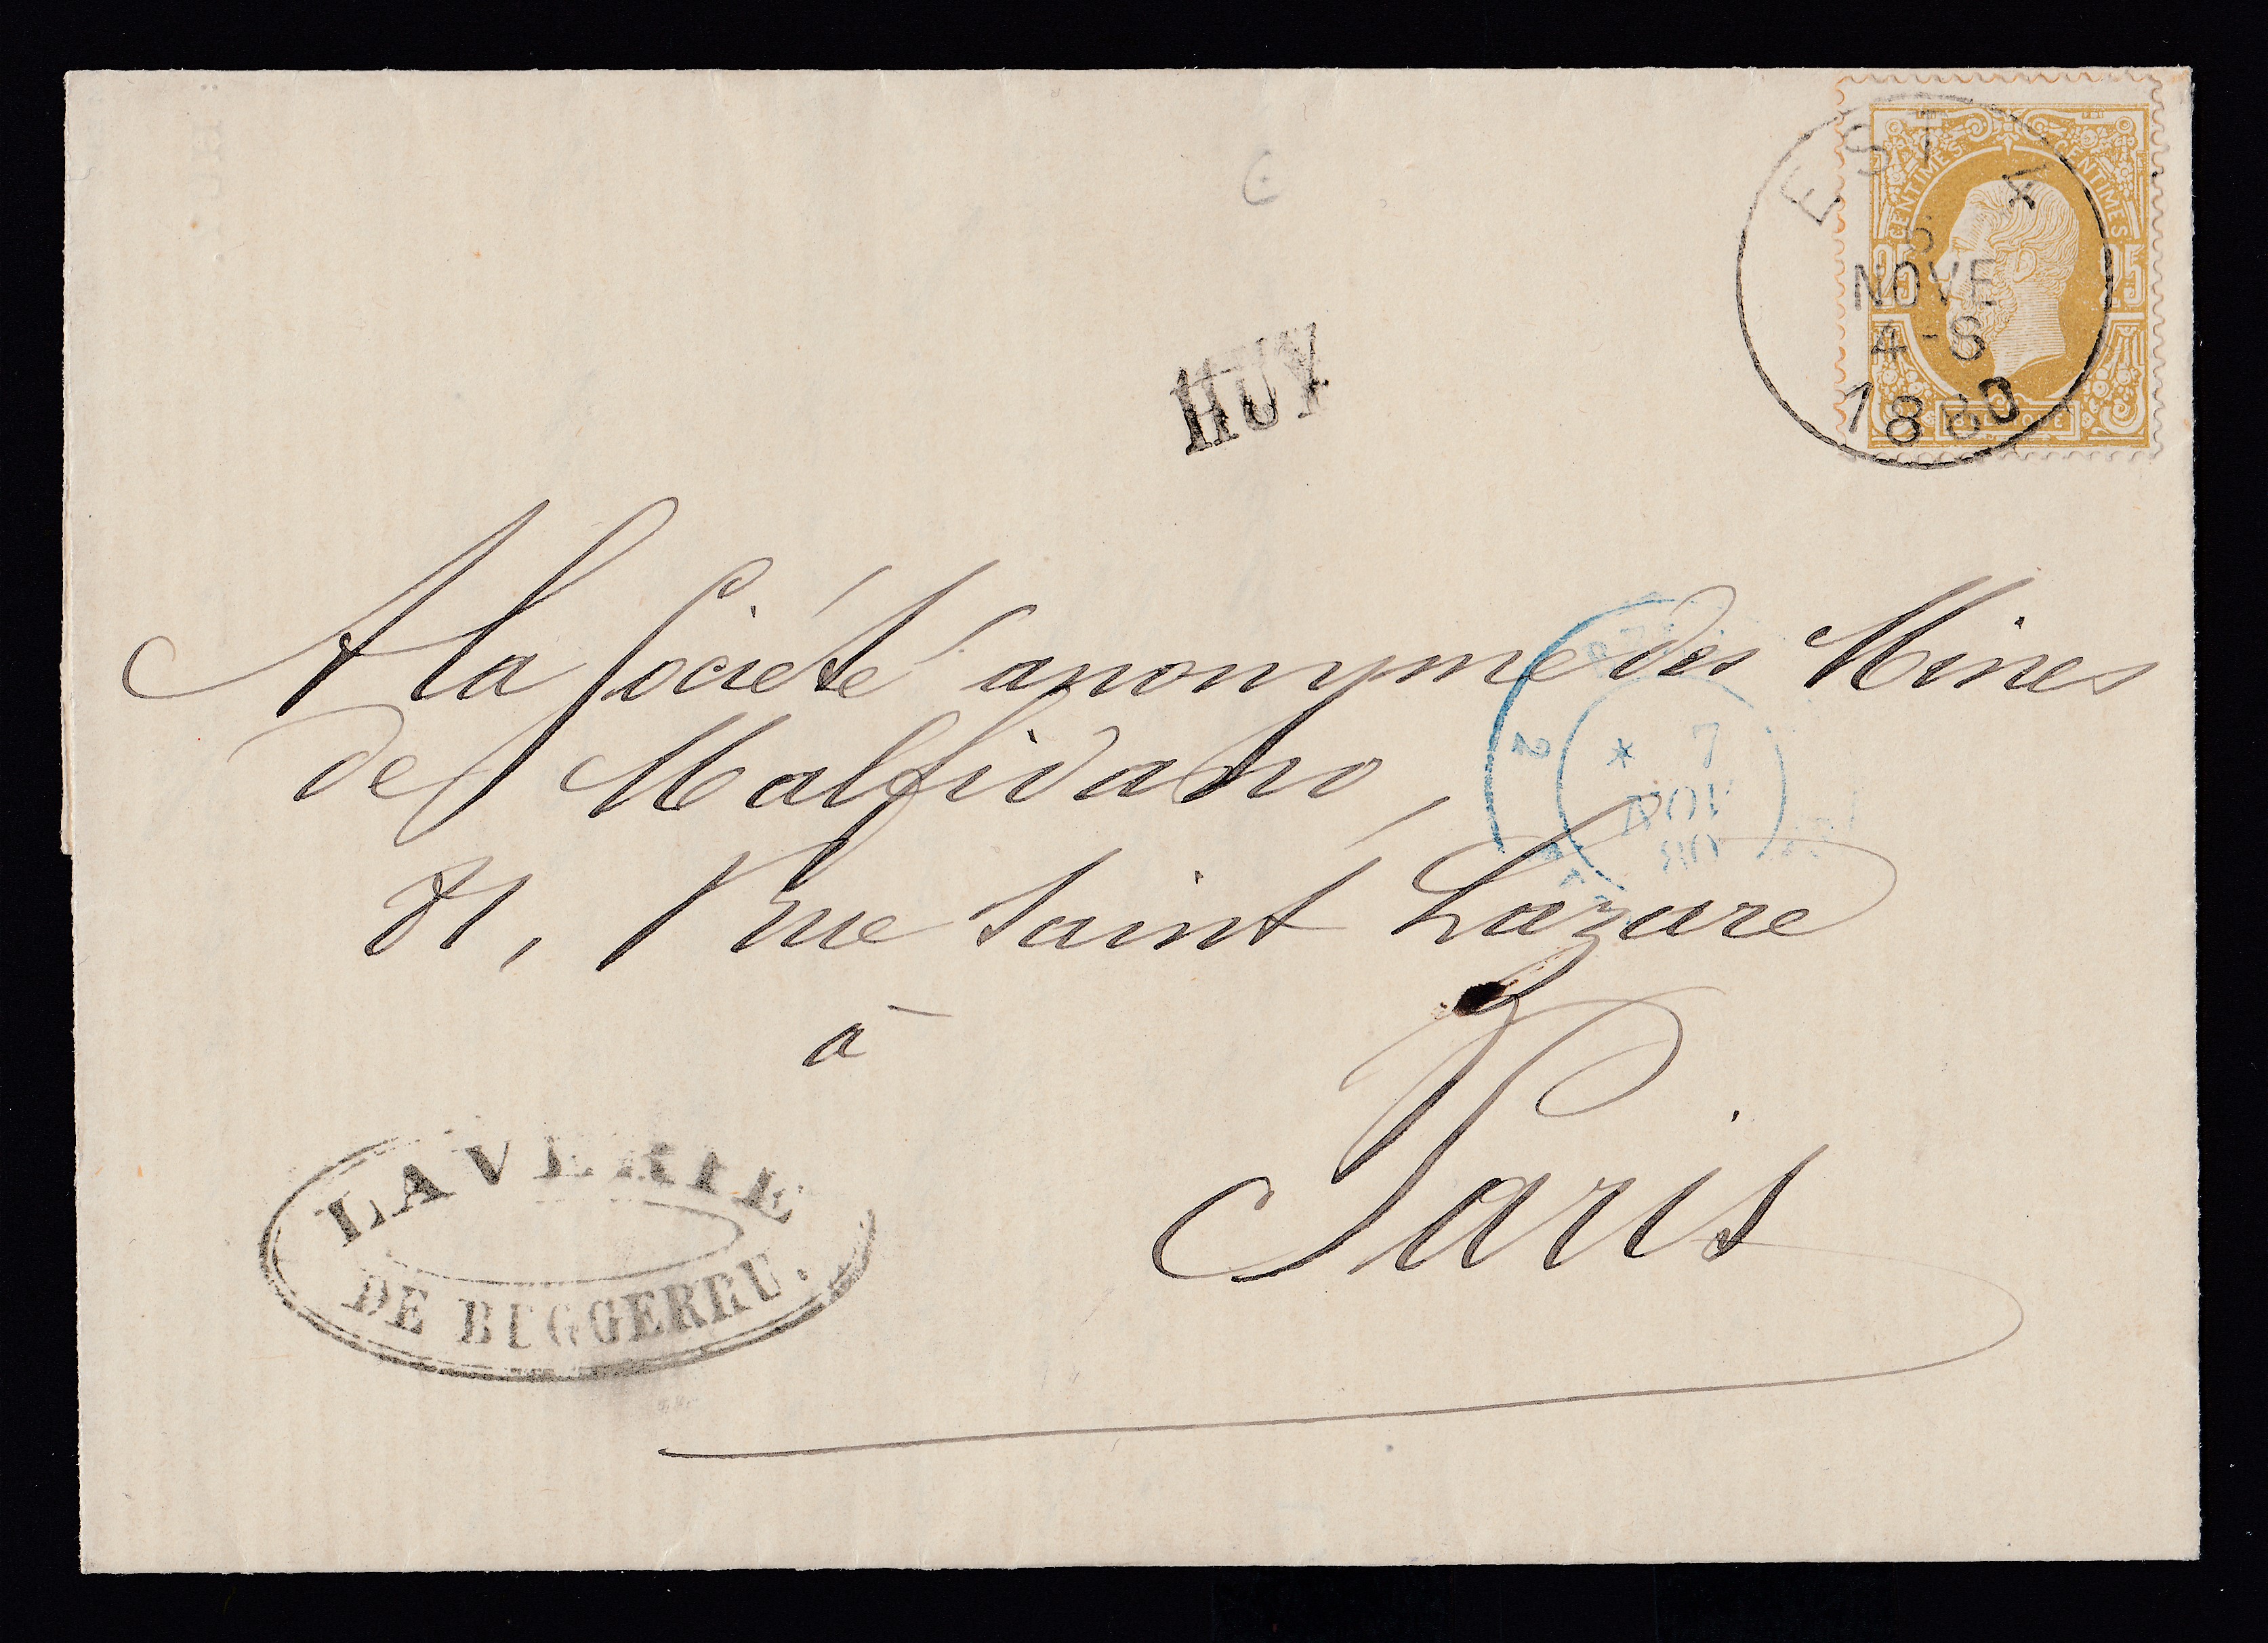 CENTIMES CENTIMES
25 25
EST 4
NOVE
4-8
1880
HUY
A la Société anonyme des Mines
de Malfidano,
rue Saint Lazare
à
Paris
7
NOV
LAVERIE
DE BUGGERRU.